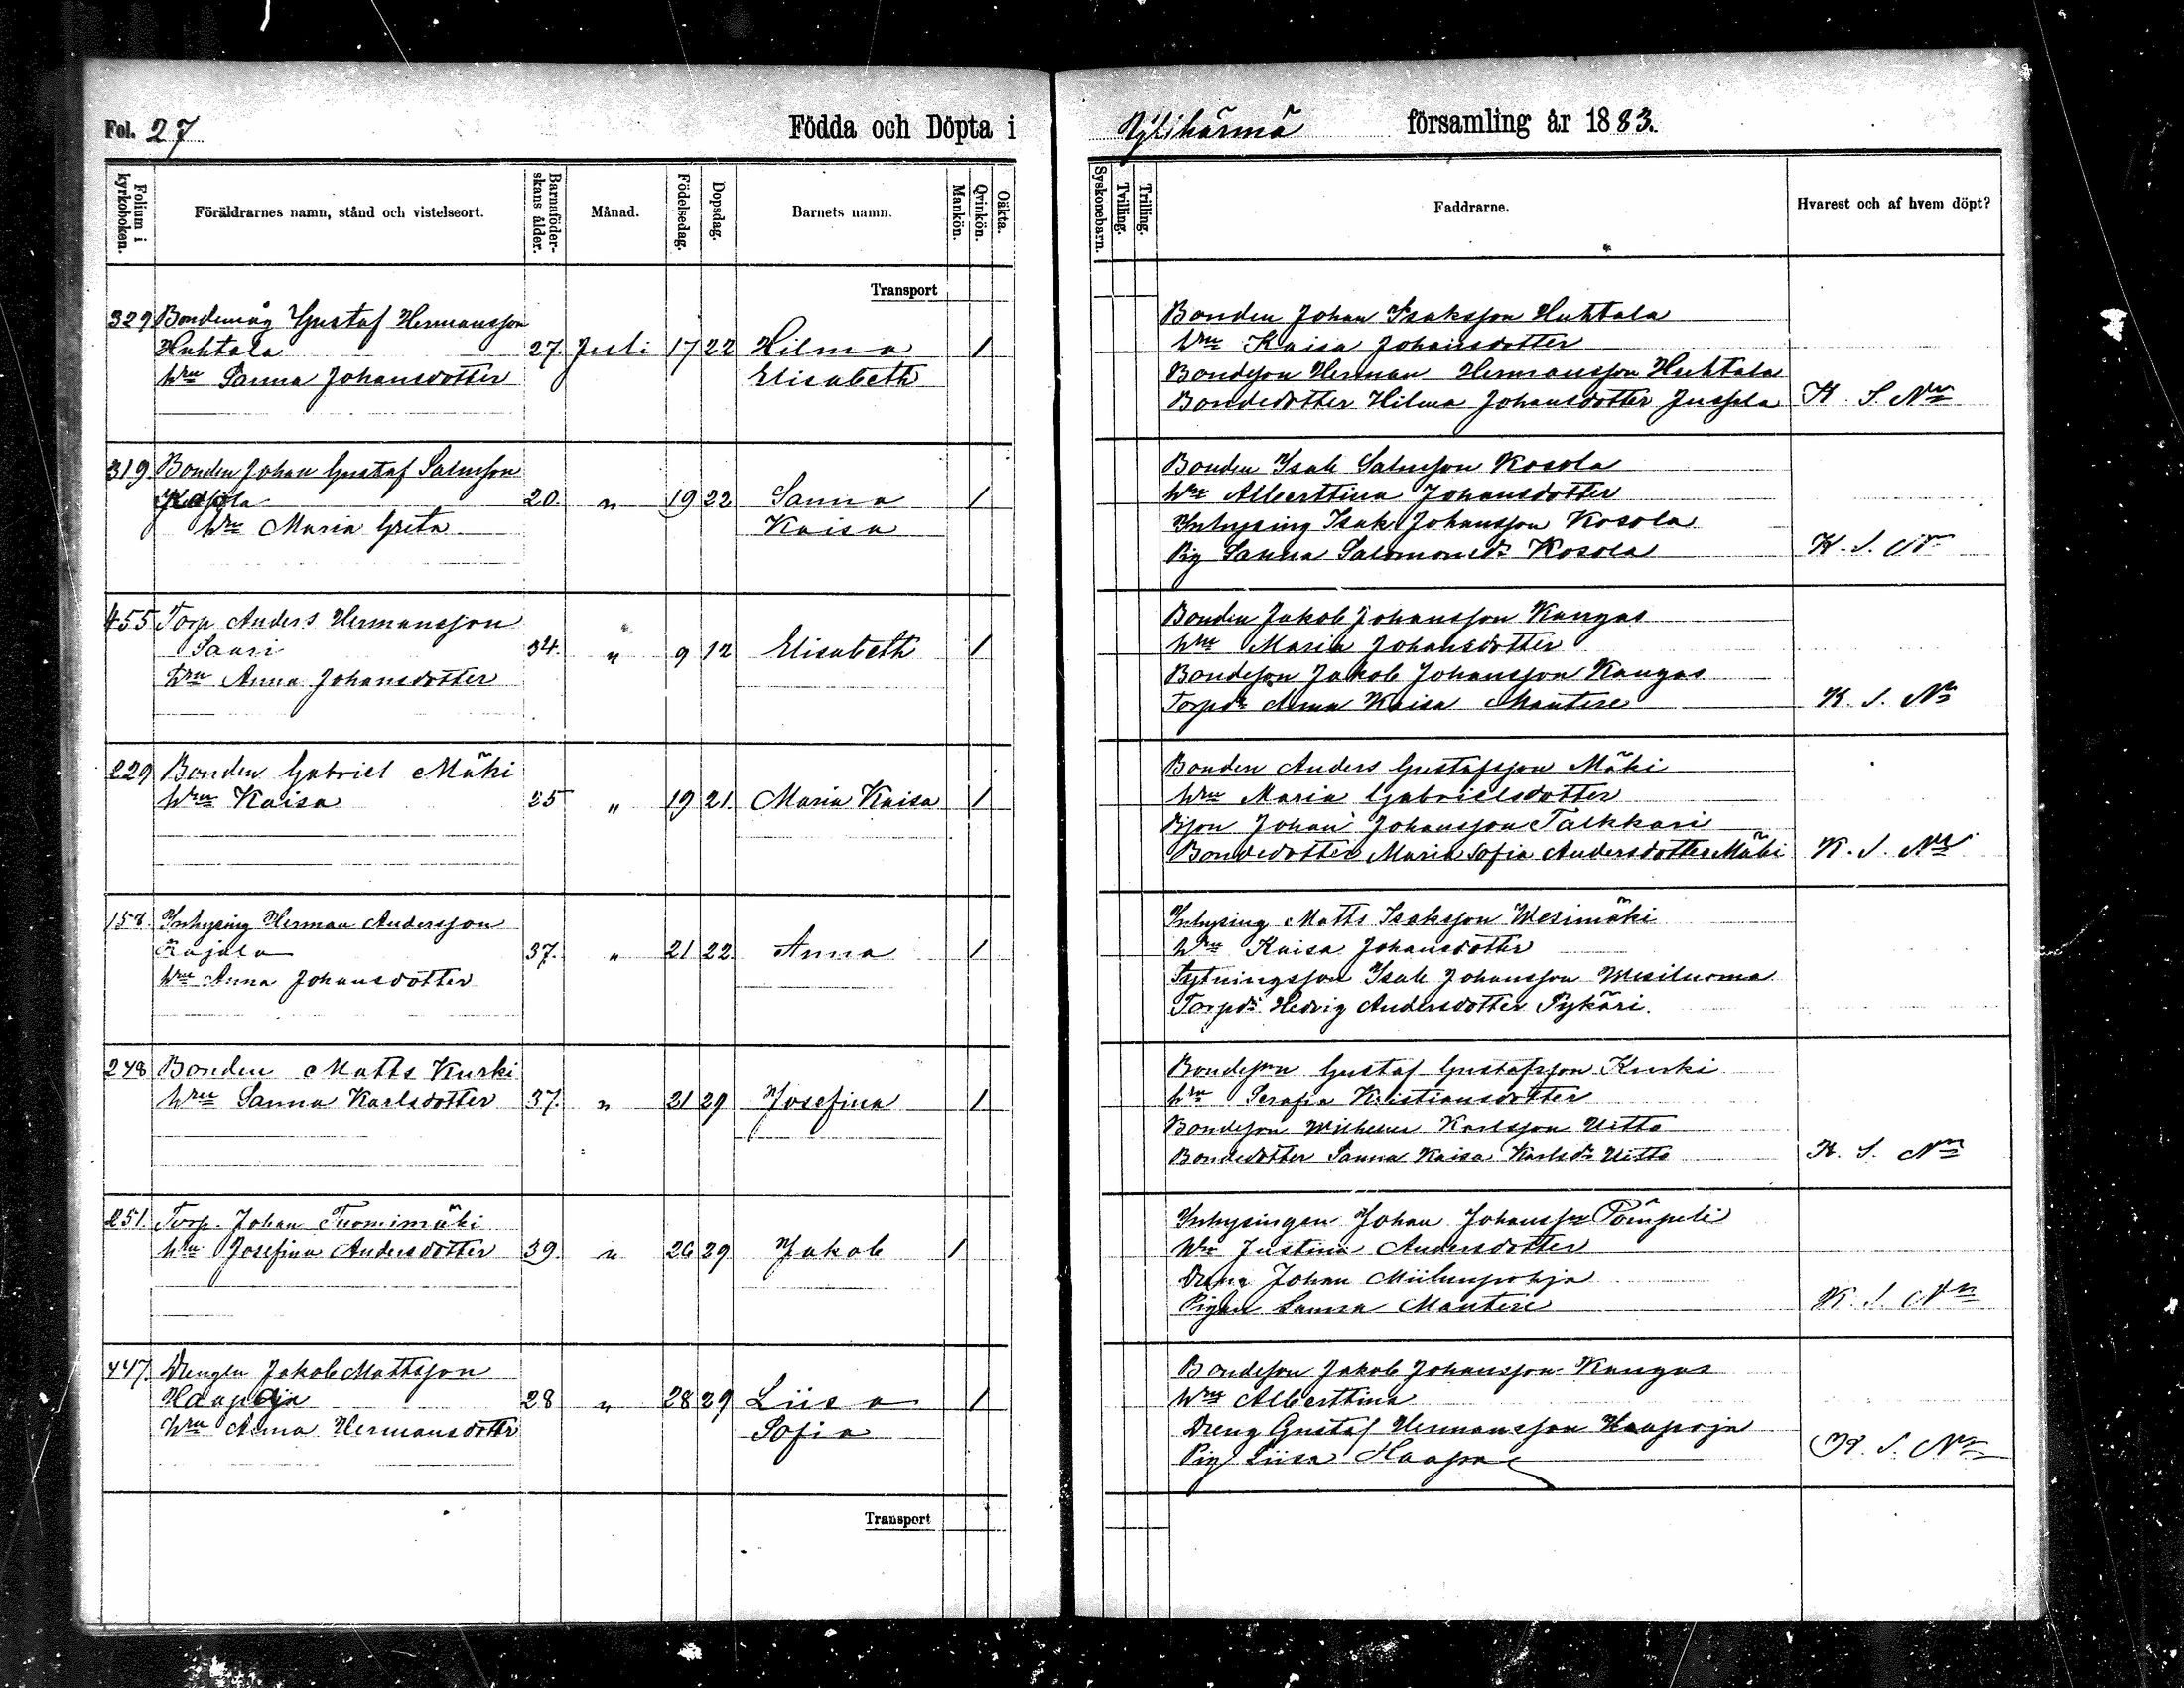 Fol. 27
Födda och Döpta i
Ylihärmä församling år 1883.
Folium i kyrkoboken.
Föräldrarnes namn, stånd och vistelseort.
Barnaföderskans ålder.
Månad.
Födelsedag.
Dopsdag.
Barnets namn.
Mankön.
Qvinkön.
Oäkta.
Syskonebarn.
Tvilling.
Trilling.
Faddrarne.
Hvarest och af hvem döpt?
Transport
329 Bondemåg Gustaf Hermansson
Huhtala 27. Juli 17 22 Hilma 1
hru Sanna Johansdotter Elisabeth
Bonden Johan Isaksson Huhtala
hru Kaisa Johansdotter
Bondeson Herman Hermansson Huhtala
Bondedotter Hilma Johansdotter Jussila K. S. Nn
319 Bonden Johan Gustaf Salmsson
20. " 19 22 Sanna 1
hru Maria Greta Kaisa
Bonden Isak Salmsson Kosola
hru Alberttina Johansdotter
Inhysing Isak Johansson Kosola
Pig Sanna Salomonsdr Kosola K. S. Nn
455 Torp Anders Hermansson
Saari 34. " 9 12 Elisabeth 1
hru Anna Johansdotter
Bonden Jakob Johansson Kangas
hru Maria Johansdotter
Bondeson Jakob Johansson Kangas
Torpdr Anna Kaisa Mantere K. S. Nn
229 Bonden Gabriel Mäki
hru Kaisa 25 " 19 21. Maria Kaisa 1
Bonden Anders Gustafsson Mäki
hru Maria Gabrielsdotter
Bson Johan Johansson Talkkari
Bondedotter Maria Sofia Andersdotter Mäki K. S. Nn
158. Inhysing Herman Andersson
Rajala 37. " 21 22. Anna 1
hru Anna Johansdotter
Inhysing Matts Isaksson Wesimäki
hru Kaisa Johansdotter
Sytningsson Isak Johansson Wesiluoma
Torpdr Hedvig Andersdotter Pykäri.
248 Bonden Matts Kurki
hru Sanna Karlsdotter 37. " 21 29 Josefina 1
Bondeson Gustaf Gustafsson Kurki
hru Serafia Kristiansdotter
Bondeson Wilhelm Karlsson Uitto
Bondedotter Sanna Kaisa Karlsdr Uitto K. S. Nn
251. Torp. Johan Tuomimäki
hru Josefina Andersdotter 39. " 26 29 Jakob 1
Inhysingen Johan Johansson Pömpeli
hru Justina Andersdotter
Dreng Johan Miilunpohja
Pigan Sanna Mantere K. S. Nn
447. Drengen Jakob Mattsson
Haapoja 28 " 28 29 Liisa 1
hru Anna Hermansdotter Sofia
Bondeson Jakob Johansson Kangas
hru Alberttina
Dreng Gustaf Hermansson Haapoja
Pig Liisa K. S. Nn
Transport